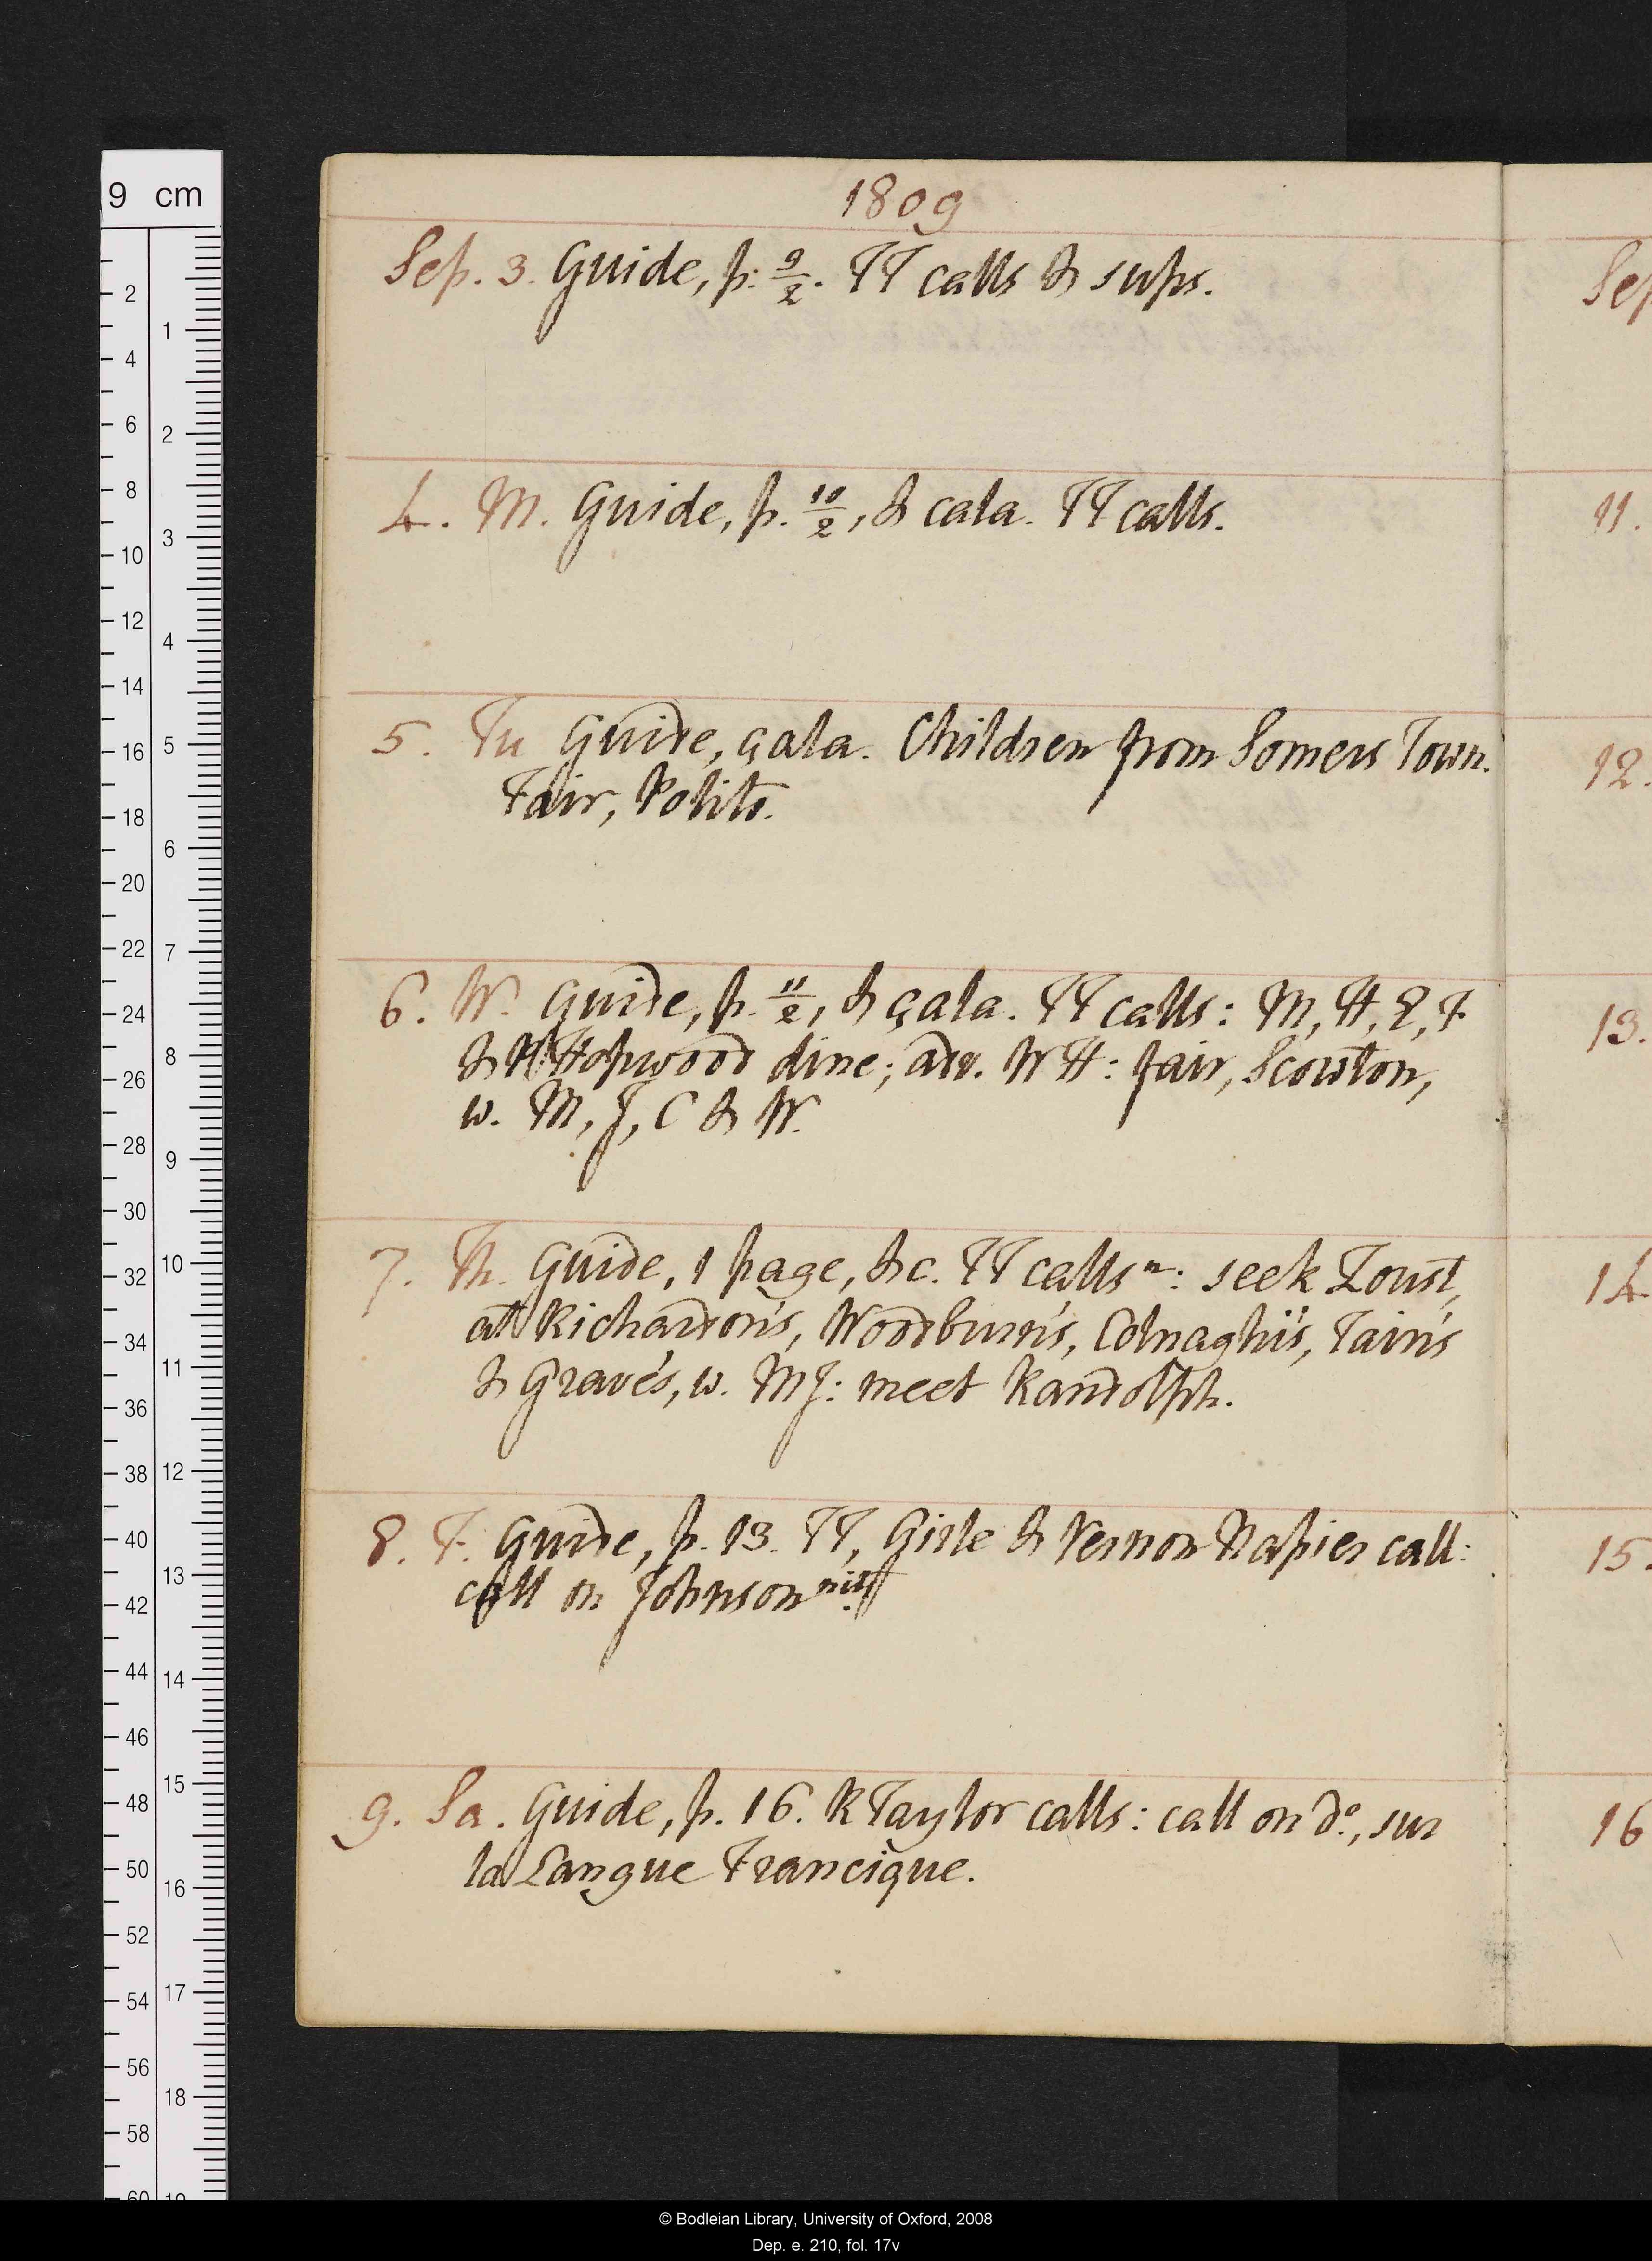 1809
Sep. 3. Guide, p. 9/2. TT calls & sups.
4. M. Guide, p. 10/2, & cala. TT calls.
5. Tu Guide, çala. Children from Somers Town.
Fair, Polito.
6. W. Guide, p. 11/2, & çala. TT calls: M, H, E, F
& H Hopwood dine; adv. W H: fair, Scowton,
w. M, J, C & W.
7. Th. Guide, 1 page, &c. TT calls n: seek Zoust,
at Richardson's, Woodburn's, Colnaghi's,
& Graves, w. MJ: meet Randolph.
8. F. Guide, p. 13. TT, Girle & Vernon Napier call:
call on Johnson nit
9. Sa. Guide, p. 16. R Taylor calls: call on do., sur
la Langue Francique.
Sep
11.
12.
13.
14
15.
16
9 cm
2
4
6
8
10
12
14
16
18
20
22
24
26
28
30
32
34
36
38
40
42
44
46
48
50
52
54
56
58
60
1
2
3
4
5
6
7
8
9
10
11
12
13
14
15
16
17
18
© Bodleian Library, University of Oxford, 2008
Dep. e. 210, fol. 17v